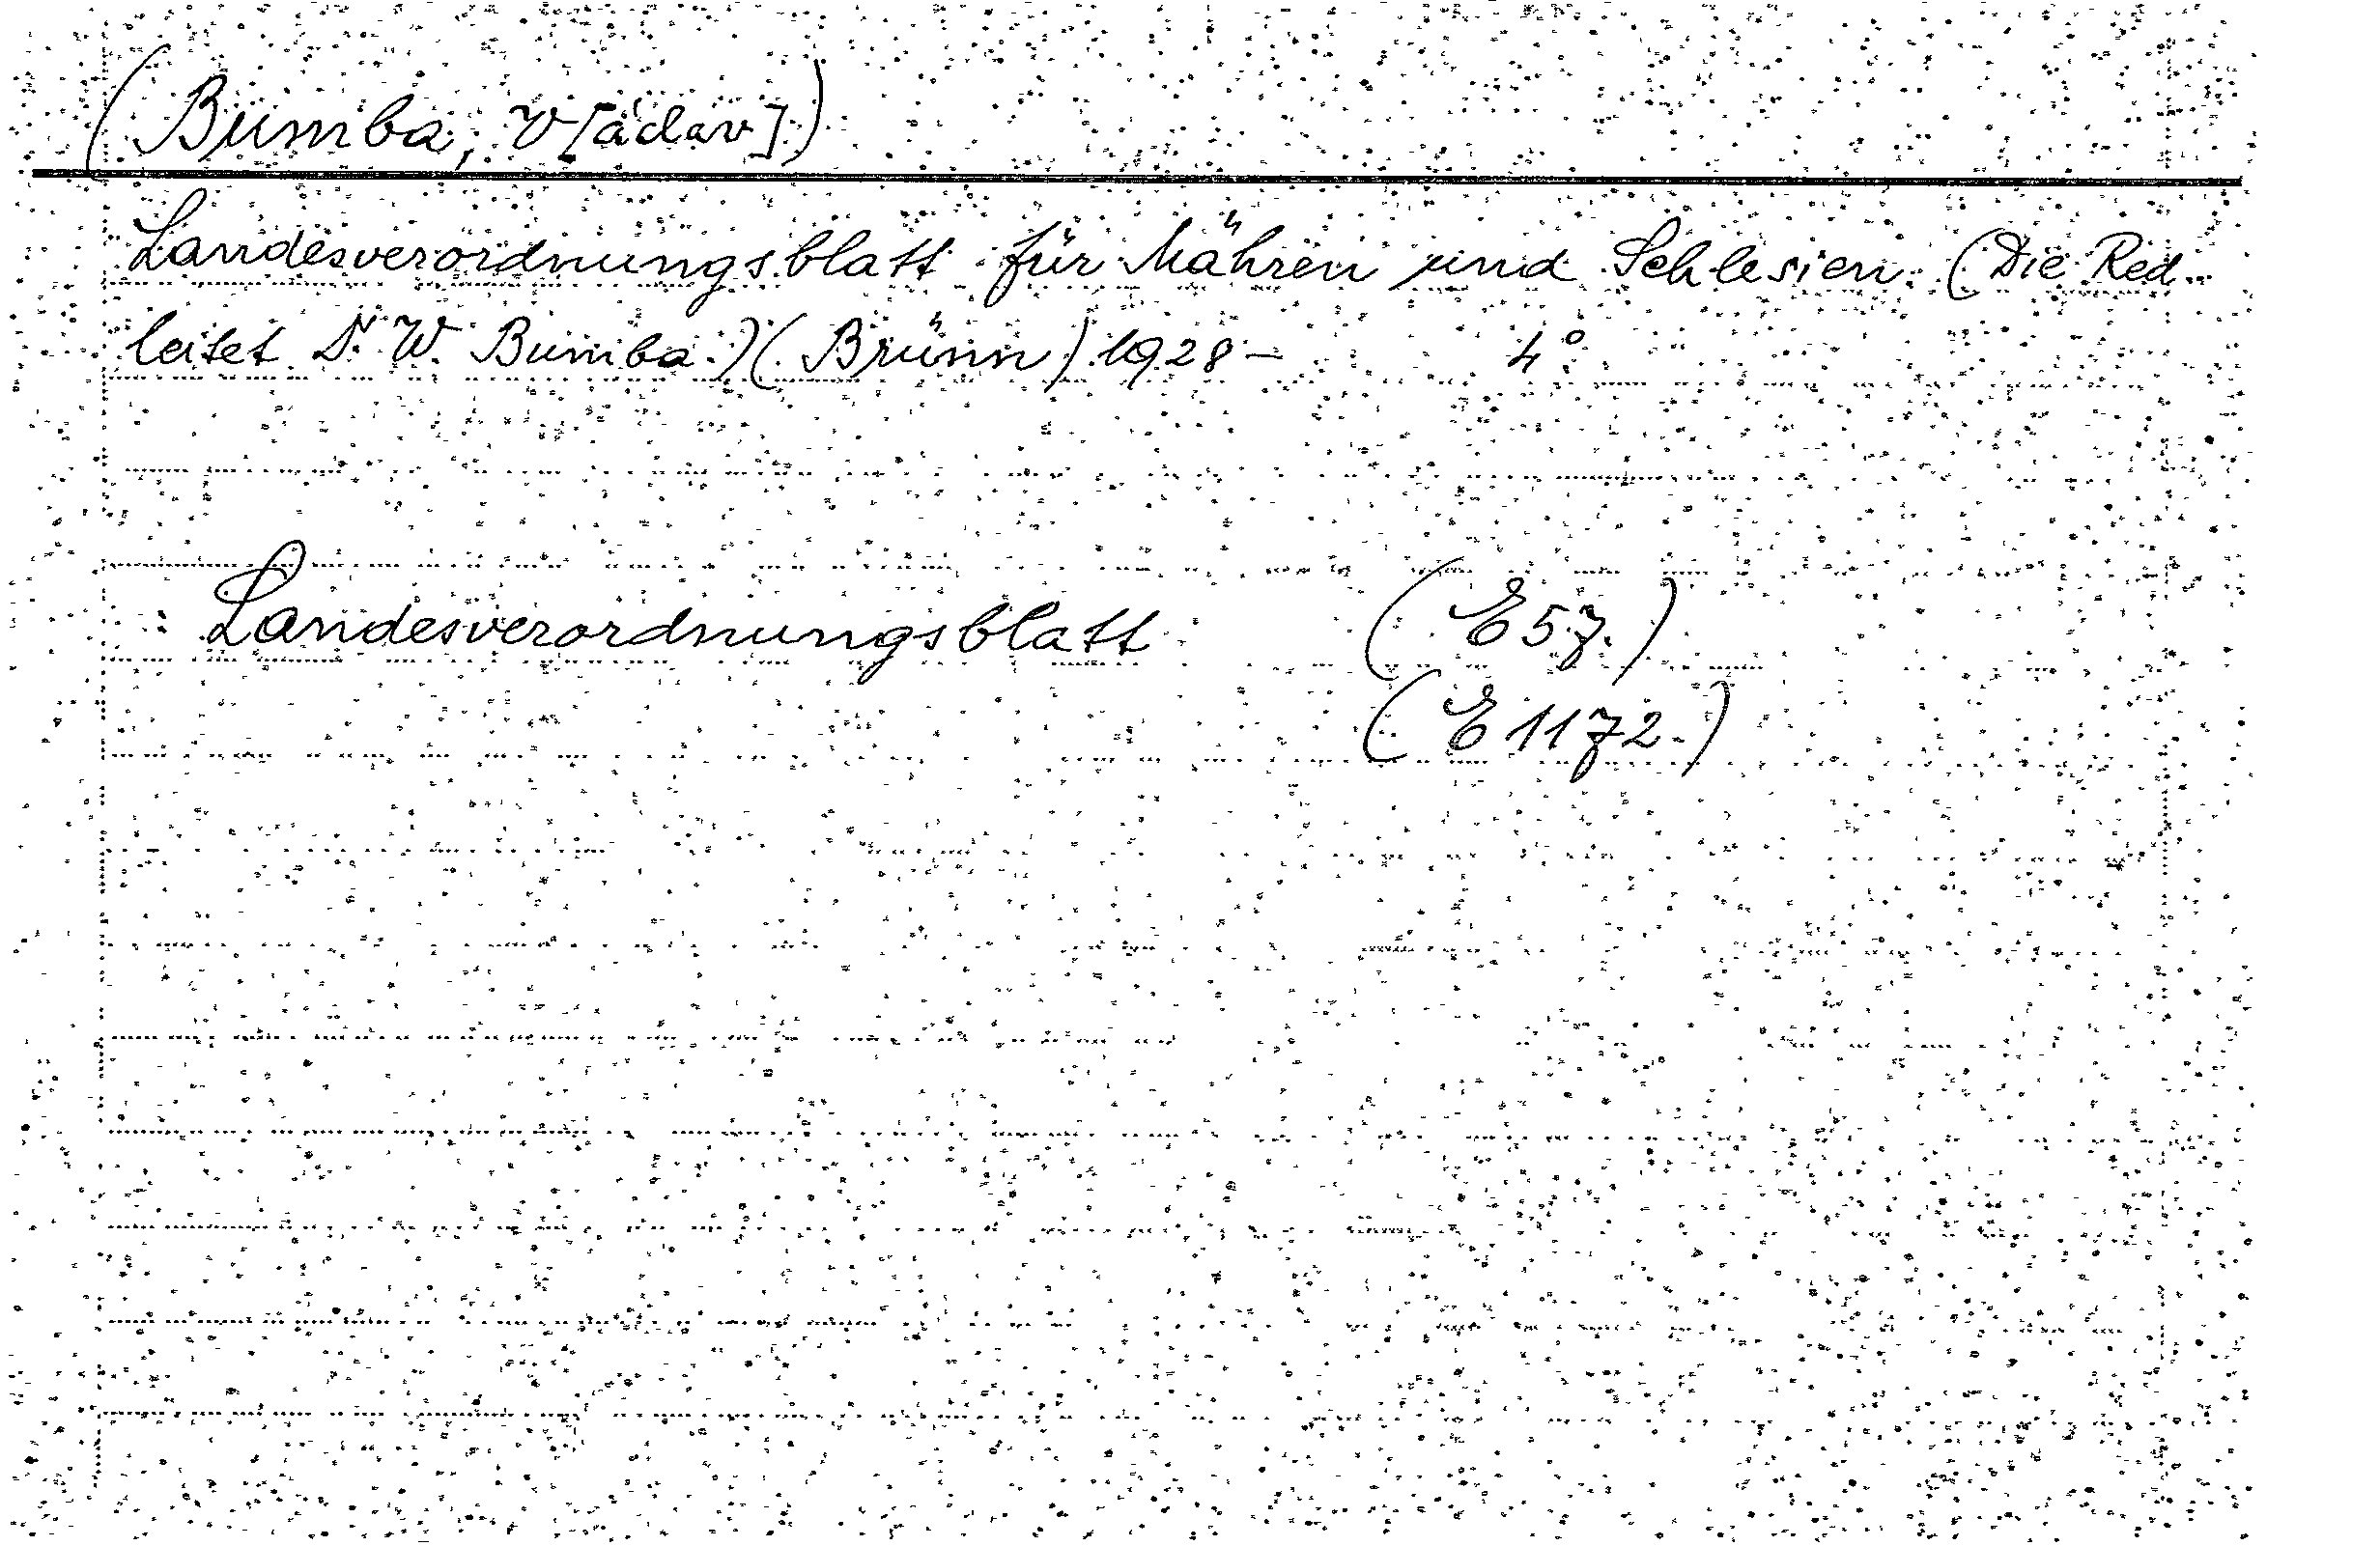 (Bumba, V[áclav])
Landesverordnungsblatt für Mähren und Schlesien. (Die Red.
leitet Dr. W. Bumba.) (Brünn) 1928– 4°
Landesverordnungsblatt (E57.)
(E1172.)